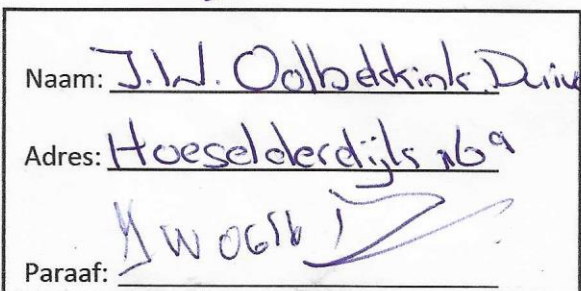 Naam: J.W. Oolbekkink
Adres: Hoeselderdijk 16a
Paraaf: